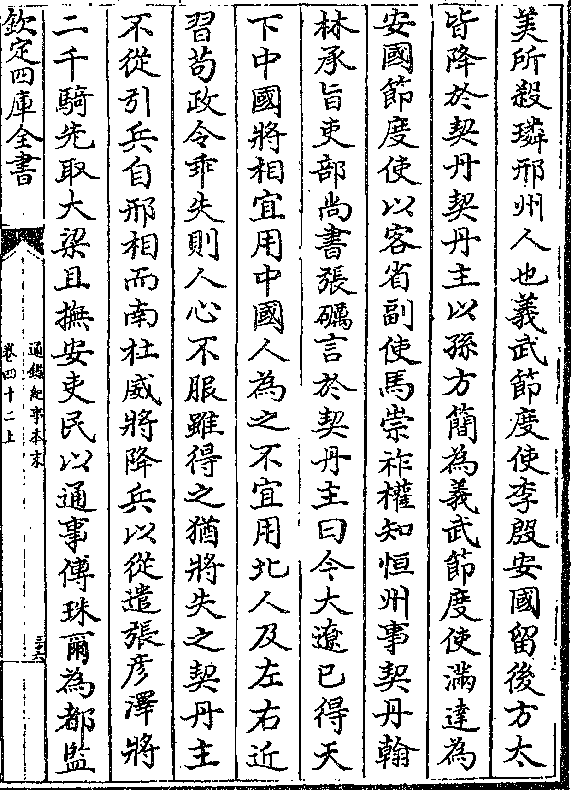 美所殺璘邢州人也義武節度使李殷安國留後方太
皆降於契丹契丹主以孫方簡為義武節度使滿達為
安國節度使以客省副使馬崇祚權知恒州事契丹翰
林承旨吏部尚書張礪言於契丹主曰今大遼已得天
下中國將相宜用中國人為之不宜用北人及左右近
習苟政令乖失則人心不服雖得之猶將失之契丹主
不從引兵自邢相而南杜威將降兵以從遣張彦澤將
二千騎先取大梁且撫安吏民以通事傅珠爾為都監
欽定四庫全書
通鑑紀事本末
卷四十二上
三六